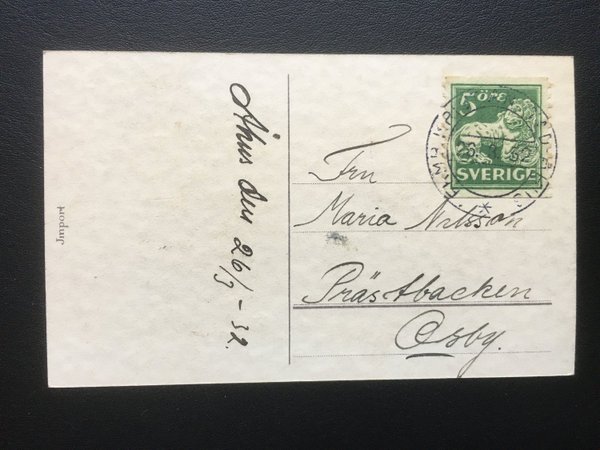 Åhus den 26/3-32.
Fru
Maria Nilsson
Prästbacken
Osby.
5 ÖRE
SVERIGE
Jmport